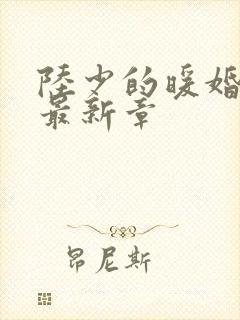 陸少的暖婚
最新章
昂尼斯